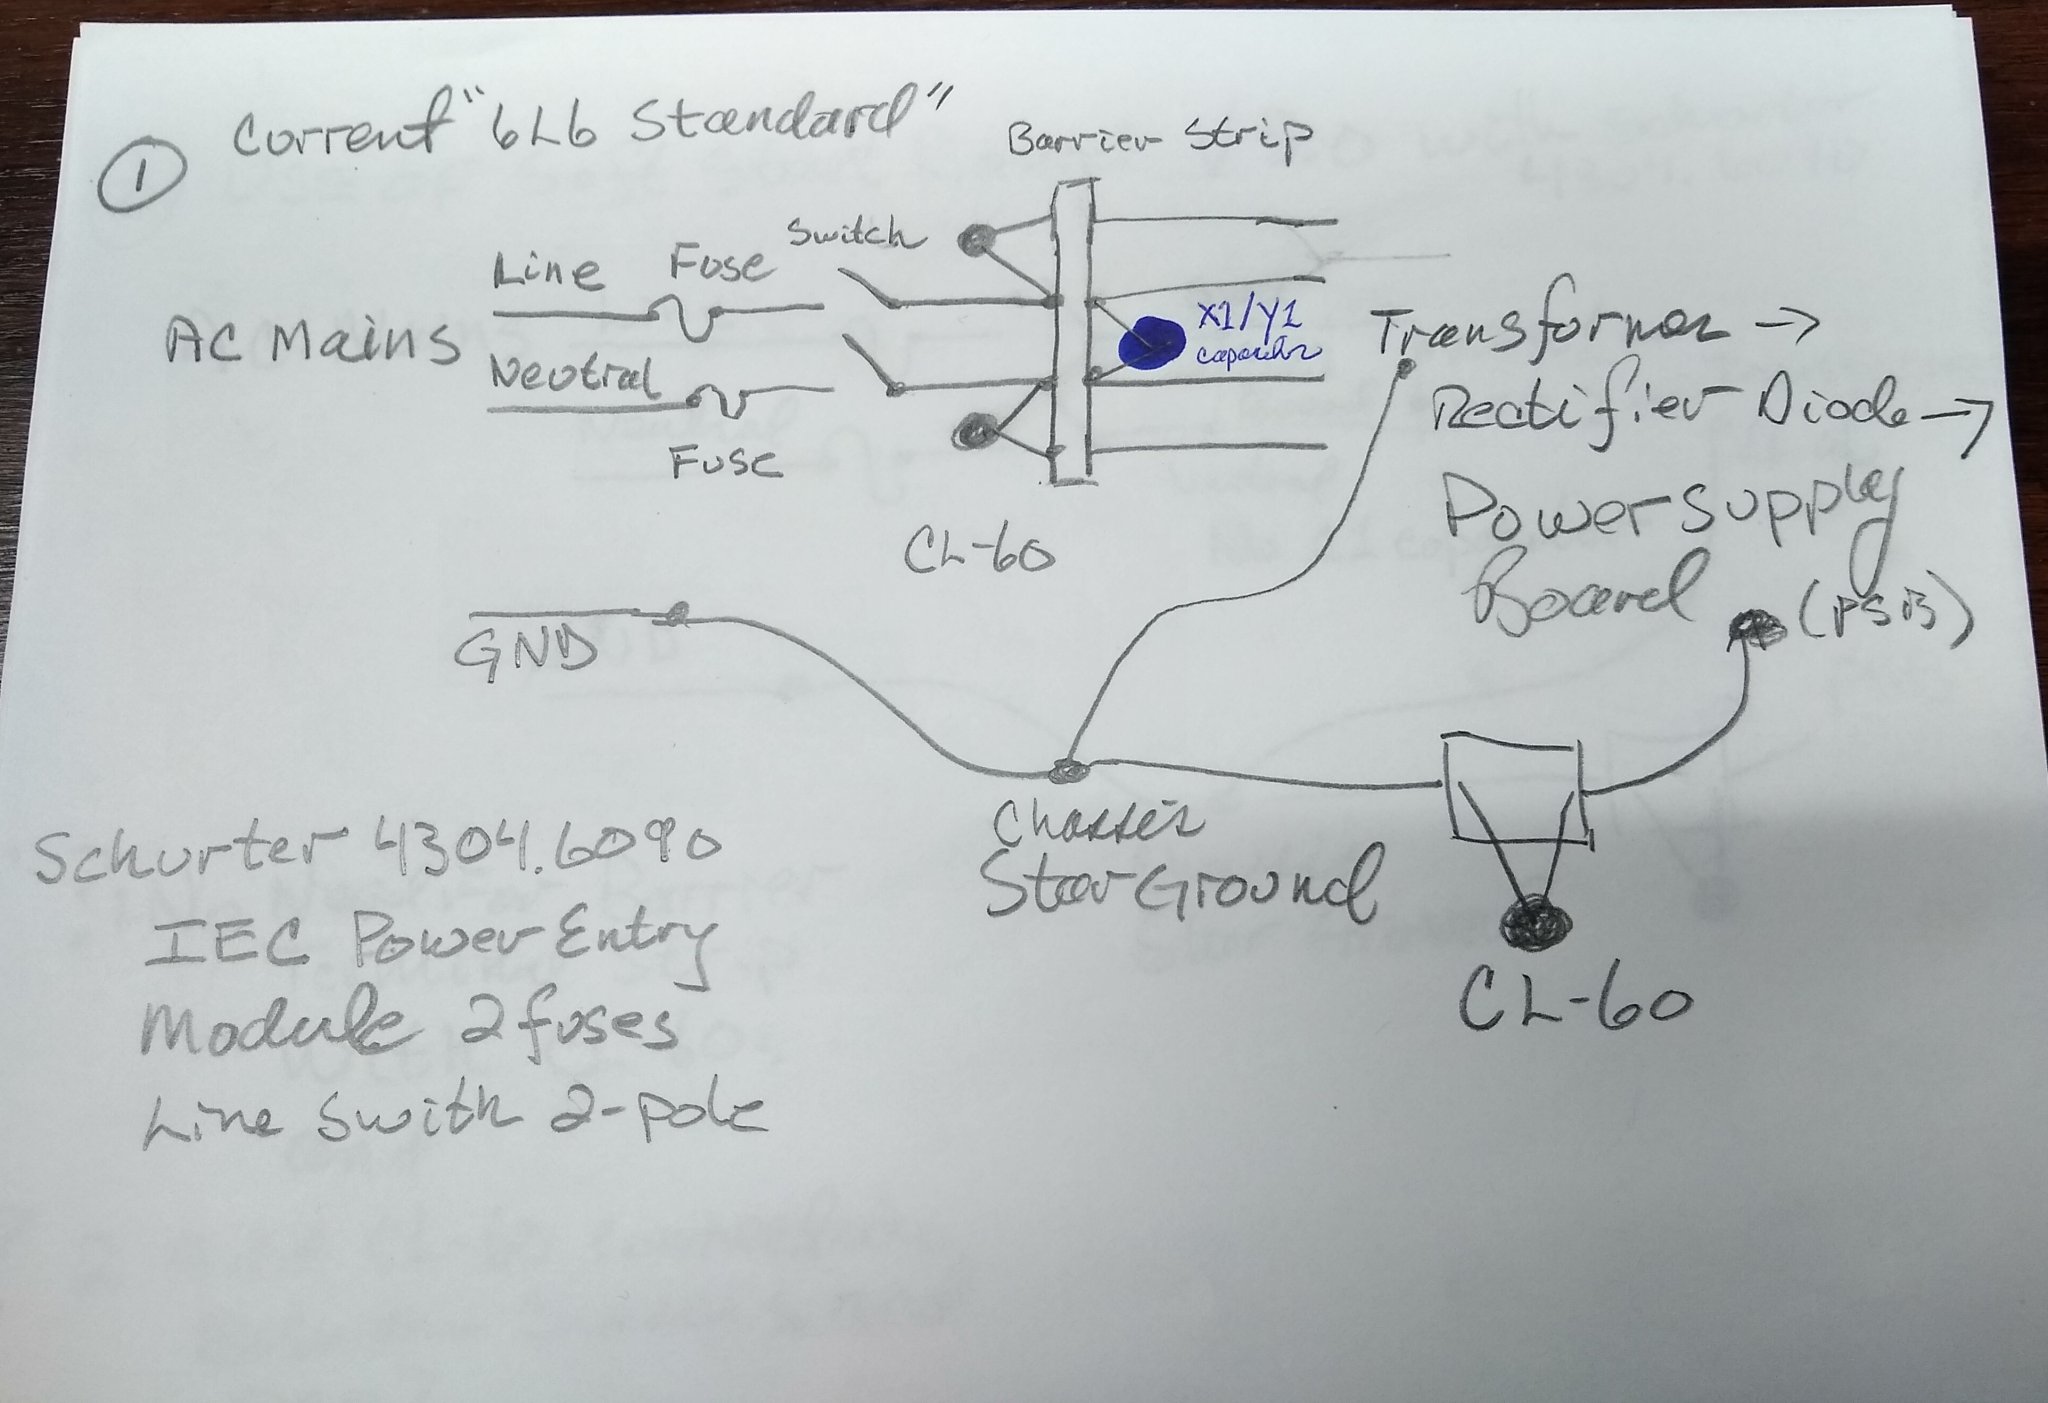 ① Current "6L6 Standard"
Barrier Strip
Switch
Line Fuse
AC Mains
Neutral
Fuse
X1/Y1
capacitor
CL-60
Transformer →
Rectifier Diode →
Power supply
Board (PSB)
GND
Chassis
Star Ground
CL-60
Schurter 4304.6090
IEC Power Entry
Module 2 fuses
Line Swith 2-pole